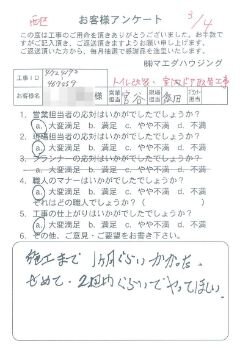 お客様アンケート
3/4
この度は工事のご用命を頂きありがとうございました。お手数で
すがご記入頂き、ご返送頂きますようお願い申し上げます。
ご返送頂いた方から、毎月抽選で感謝品を送呈致します。
㈱マエダハウジング
工事ID
様
営業担当
現場担当
1. 営業担当者の応対はいかがでしたでしょうか?
a. 大変満足 b. 満足 c. やや不満 d. 不満
2. 現場担当者の応対はいかがでしたでしょうか?
a. 大変満足 b. 満足 c. やや不満 d. 不満
3. プランナーの応対はいかがでしたでしょうか?
a. 大変満足 b. 満足 c. やや不満 d. 不満
4. 職人のマナーはいかがでしたでしょうか?
a. 大変満足 b. 満足 c. やや不満 d. 不満
それはどの職人でしょうか? ( )
5. 工事の仕上がりはいかがでしたでしょうか?
a. 大変満足 b. 満足 c. やや不満 d. 不満
6. その他、ご意見・ご要望をお書き下さい。
施工まで 1ヶ月ぐらいかかった。
せめて、2週内ぐらいでやってほしい。